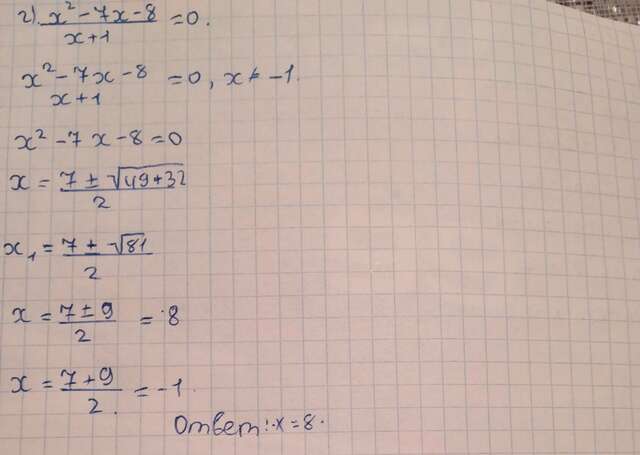 г). x² - 7x - 8 / x + 1 = 0.
x² - 7x - 8 / x + 1 = 0, x ≠ -1.
x² - 7x - 8 = 0
x = 7 ± √49+32 / 2
x₁ = 7 ± √81 / 2
x = 7 ± 9 / 2 = 8
x = 7 + 9 / 2. = -1.
Ответ: x = 8.